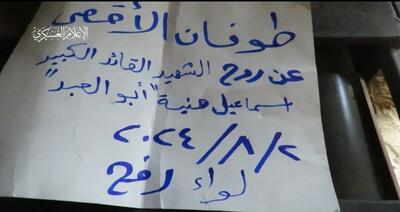 الإعلام العسكري
طوفان الأقصى
عن روح الشهيد القائد الكبير
اسماعيل هنية "أبو العبد"
٢٠٢٤/٨/٢
لواء رفح